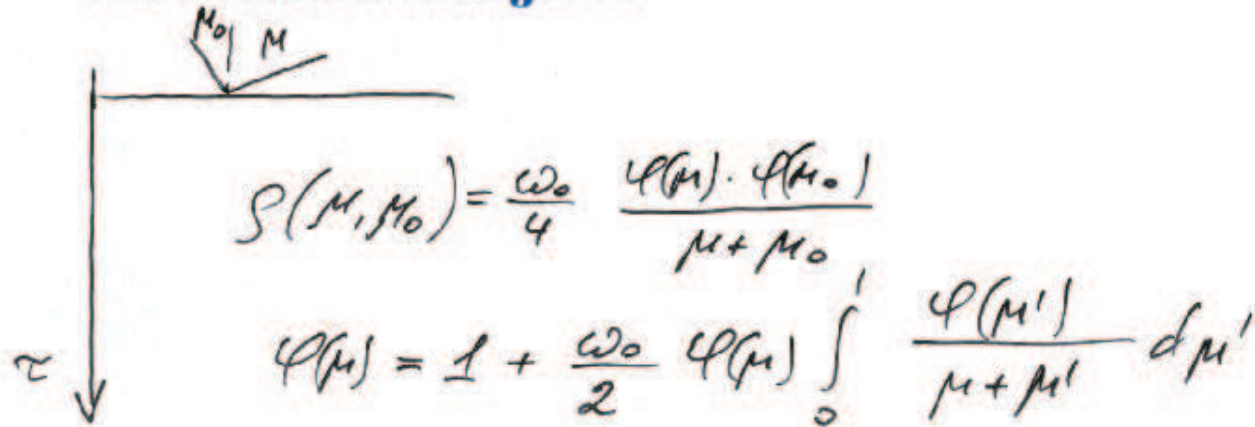 μ₀ μ
ρ(μ, μ₀) = ω₀/4 φ(μ)·φ(μ₀)/(μ + μ₀)
τ
φ(μ) = 1 + ω₀/2 φ(μ) ∫₀¹ φ(μ')/(μ + μ') dμ'